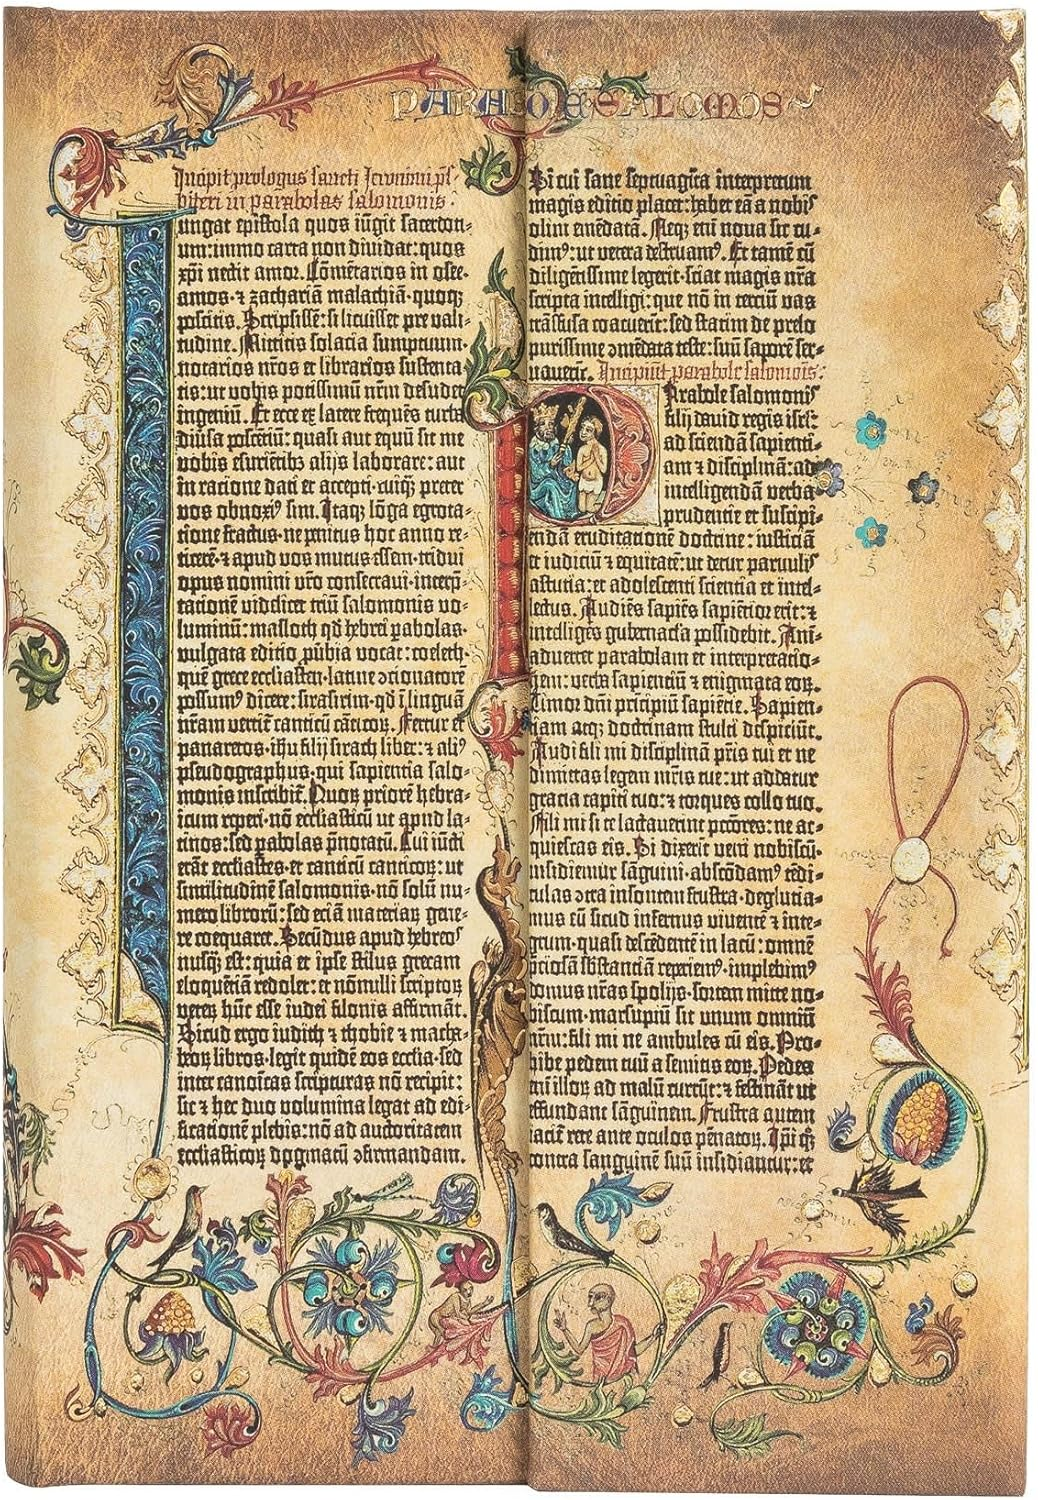 PARABOLE SALOMOIS
Incipit prologus sancti Jeronimi p̄s-
biteri in parabolas salomonis.
Iungat epistola quos iūgit sacerdoti-
um: immo carta non dividat: quos
xp̄i nectit amor. Cōmētarios in osee.
amos. ⁊ zachariā malachiā. quoqꝫ
poscitis. Scripsissē: si licuisset pre vali-
tudine. Mittitis solacia sumptuum.
notarios nr̄os et librarios sustenta-
tis: ut vobis potissimū nr̄m desudet
ingeniū. Et ecce ex latere frequēs turba
diūsa poscētiū: quasi aut equū sit me
vobis esurientibꝫ alijs laborare: aut
in ratione dati et accepti. cuiqꝫ preter
vos obnoxiꝰ sim. Itaqꝫ lōga egrota-
tione fractus. ne penitus hoc anno re-
ticerē. ⁊ apud vos mutus essem. tridui
opus nomini vr̄o consecravi. interp̄-
tationē videlicet triū salomonis vo-
luminū: masloth qd̄ hebrei pabolas.
vulgata editio pūbia vocat: coeleth.
quē grece ecclesiasten. latine ↄcionatorē
possumꝰ dicere: sirasirim. qd̄ ī linguā
nr̄am vertit̄ canticū cāticoꝝ. Fertur et
panaretos. ihu filij sirach liber: ⁊ aliꝰ
pseudographus. qui sapientia salo-
monis inscribit̄. Quoꝝ priorē hebra-
icum reperi. nō ecclesiasticū ut apud la-
tinos: sed pabolas p̄notatū. Cui iūcti
erāt ecclesiastes. et canticū canticoꝝ: ut
similitudinē salomonis. nō solū nu-
mero librorū: sed eciā materiaꝝ gene-
re coequaret. Secūdus apud hebreoꝰ
nusqꝫ est: quia et ipse stilus grecam
eloquētiā redolet: et nōnulli scriptoꝝ
veteꝝ hūc esse iudei filonis affirmāt.
Sicud ergo iudith ⁊ thobie ⁊ macha-
beoꝝ libros. legit quidē eos ecclia. sed
inter canoīcas scripturas nō recipit:
sic ⁊ hec duo volumina legat ad edi-
ficationē plebis: nō ad auctoritatem
ecclesiasticoꝝ dogmatū ↄfirmandam.
Si cui sane septuagīta interpretum
magis editio placet: habet eā a nobis
olim emēdatā. Neqꝫ em̄ nova sic cu-
dimꝰ: ut vetera destruamꝰ. Et tamē cū
diligētissime legerit. sciat magis nr̄a
scripta intelligi: que nō in terciū vas
trāsfusa coacuerīt: sed statim de prelo
purissime ↄmēdata teste: suū saporē ser-
vaverīt. Incipiūt parabole salomonis:
Parabole salomonis
filij david regis isrl̄:
ad sciendā sapienti-
am ⁊ disciplinā: ad
intelligendā verba
prudentie et suscipi-
endā eruditationē doctrine: iusticiā
et iudiciū ⁊ equitatē: ut detur parvulis
astutia: et adolescenti scientia et intel-
lectus. Audiēs sapiēs sapiētior erit: ⁊
intelligēs gubernacl̄a possidebit. Ani-
advertet parabolam et interpretatio-
nem: verba sapientiū ⁊ enigmata eoꝝ.
Timor dn̄i principiū sapiētie. Sapien-
tiam atqꝫ doctrinam stulti despiciūt.
Audi fili mi disciplinā pr̄is tui et ne
dimittas legem mr̄is tue: ut addatur
gracia capiti tuo: ⁊ torques collo tuo.
Fili mi si te lactaverint pctōres: ne ac-
quiescas eis. Si dixerīt veni nobiscū.
insidiemur sāguini. abscōdamꝰ tēdi-
culas ↄtra insontem frustra. deglutia-
mus eū sicud infernus viventē ⁊ inte-
grum. quasi descēdentē in lacū: omnē
p̄ciosā sb̄stanciā reperiemꝰ. implebimꝰ
domus nr̄as spolijs. sortem mitte no-
biscum. marsupiū sit unum omniū
nr̄m: fili mi ne ambules cū eis. Pro-
hibe pedem tuū a semitis eoꝝ. Pedes
em̄ illoꝝ ad malū currūt: ⁊ festināt ut
effundant sāguinem. Frustra autem
iacit̄ rete ante oculos pēnatoꝝ. Ip̄i qꝫ
contra sanguinē suū insidiantur: et